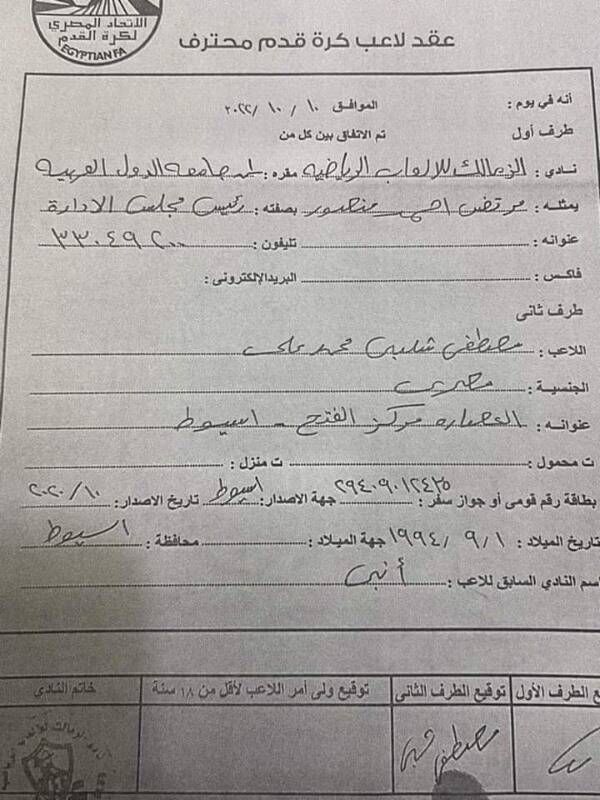 الاتحاد المصرى
لكرة القدم
EGYPTIAN FA
عقد لاعب كرة قدم محترف
أنه في يوم : الموافق ١٠ / ١٠ /٢٠٢٢
طرف أول تم الاتفاق بين كل من
نادى : الزمالك للالعاب الرياضيه مقره : جامعه الدول العربيه
يمثله : مرتضى احمد منصور بصفته : رئيس مجلس الادارة
عنوانه : تليفون : ٣٣٠٤٩٢٠٠
فاكس : البريد الإلكترونى :
طرف ثانى
اللاعب : مصطفى شلبى محمد على
الجنسية : مصرى
عنوانه : العصاره مركز الفتح - اسيوط
ت محمول : ت منزل :
بطاقة رقم قومى أو جواز سفر : جهة الاصدار: اسيوط تاريخ الاصدار: ٢٠٢٠/١٠
تاريخ الميلاد : ١ / ٩ / ١٩٩٤ جهة الميلاد : محافظة : اسيوط
اسم النادي السابق للاعب : أنبى
ع الطرف الأول توقيع الطرف الثانى توقيع ولى أمر اللاعب لأقل من ١٨ سنة خاتم النادى
مصطفى